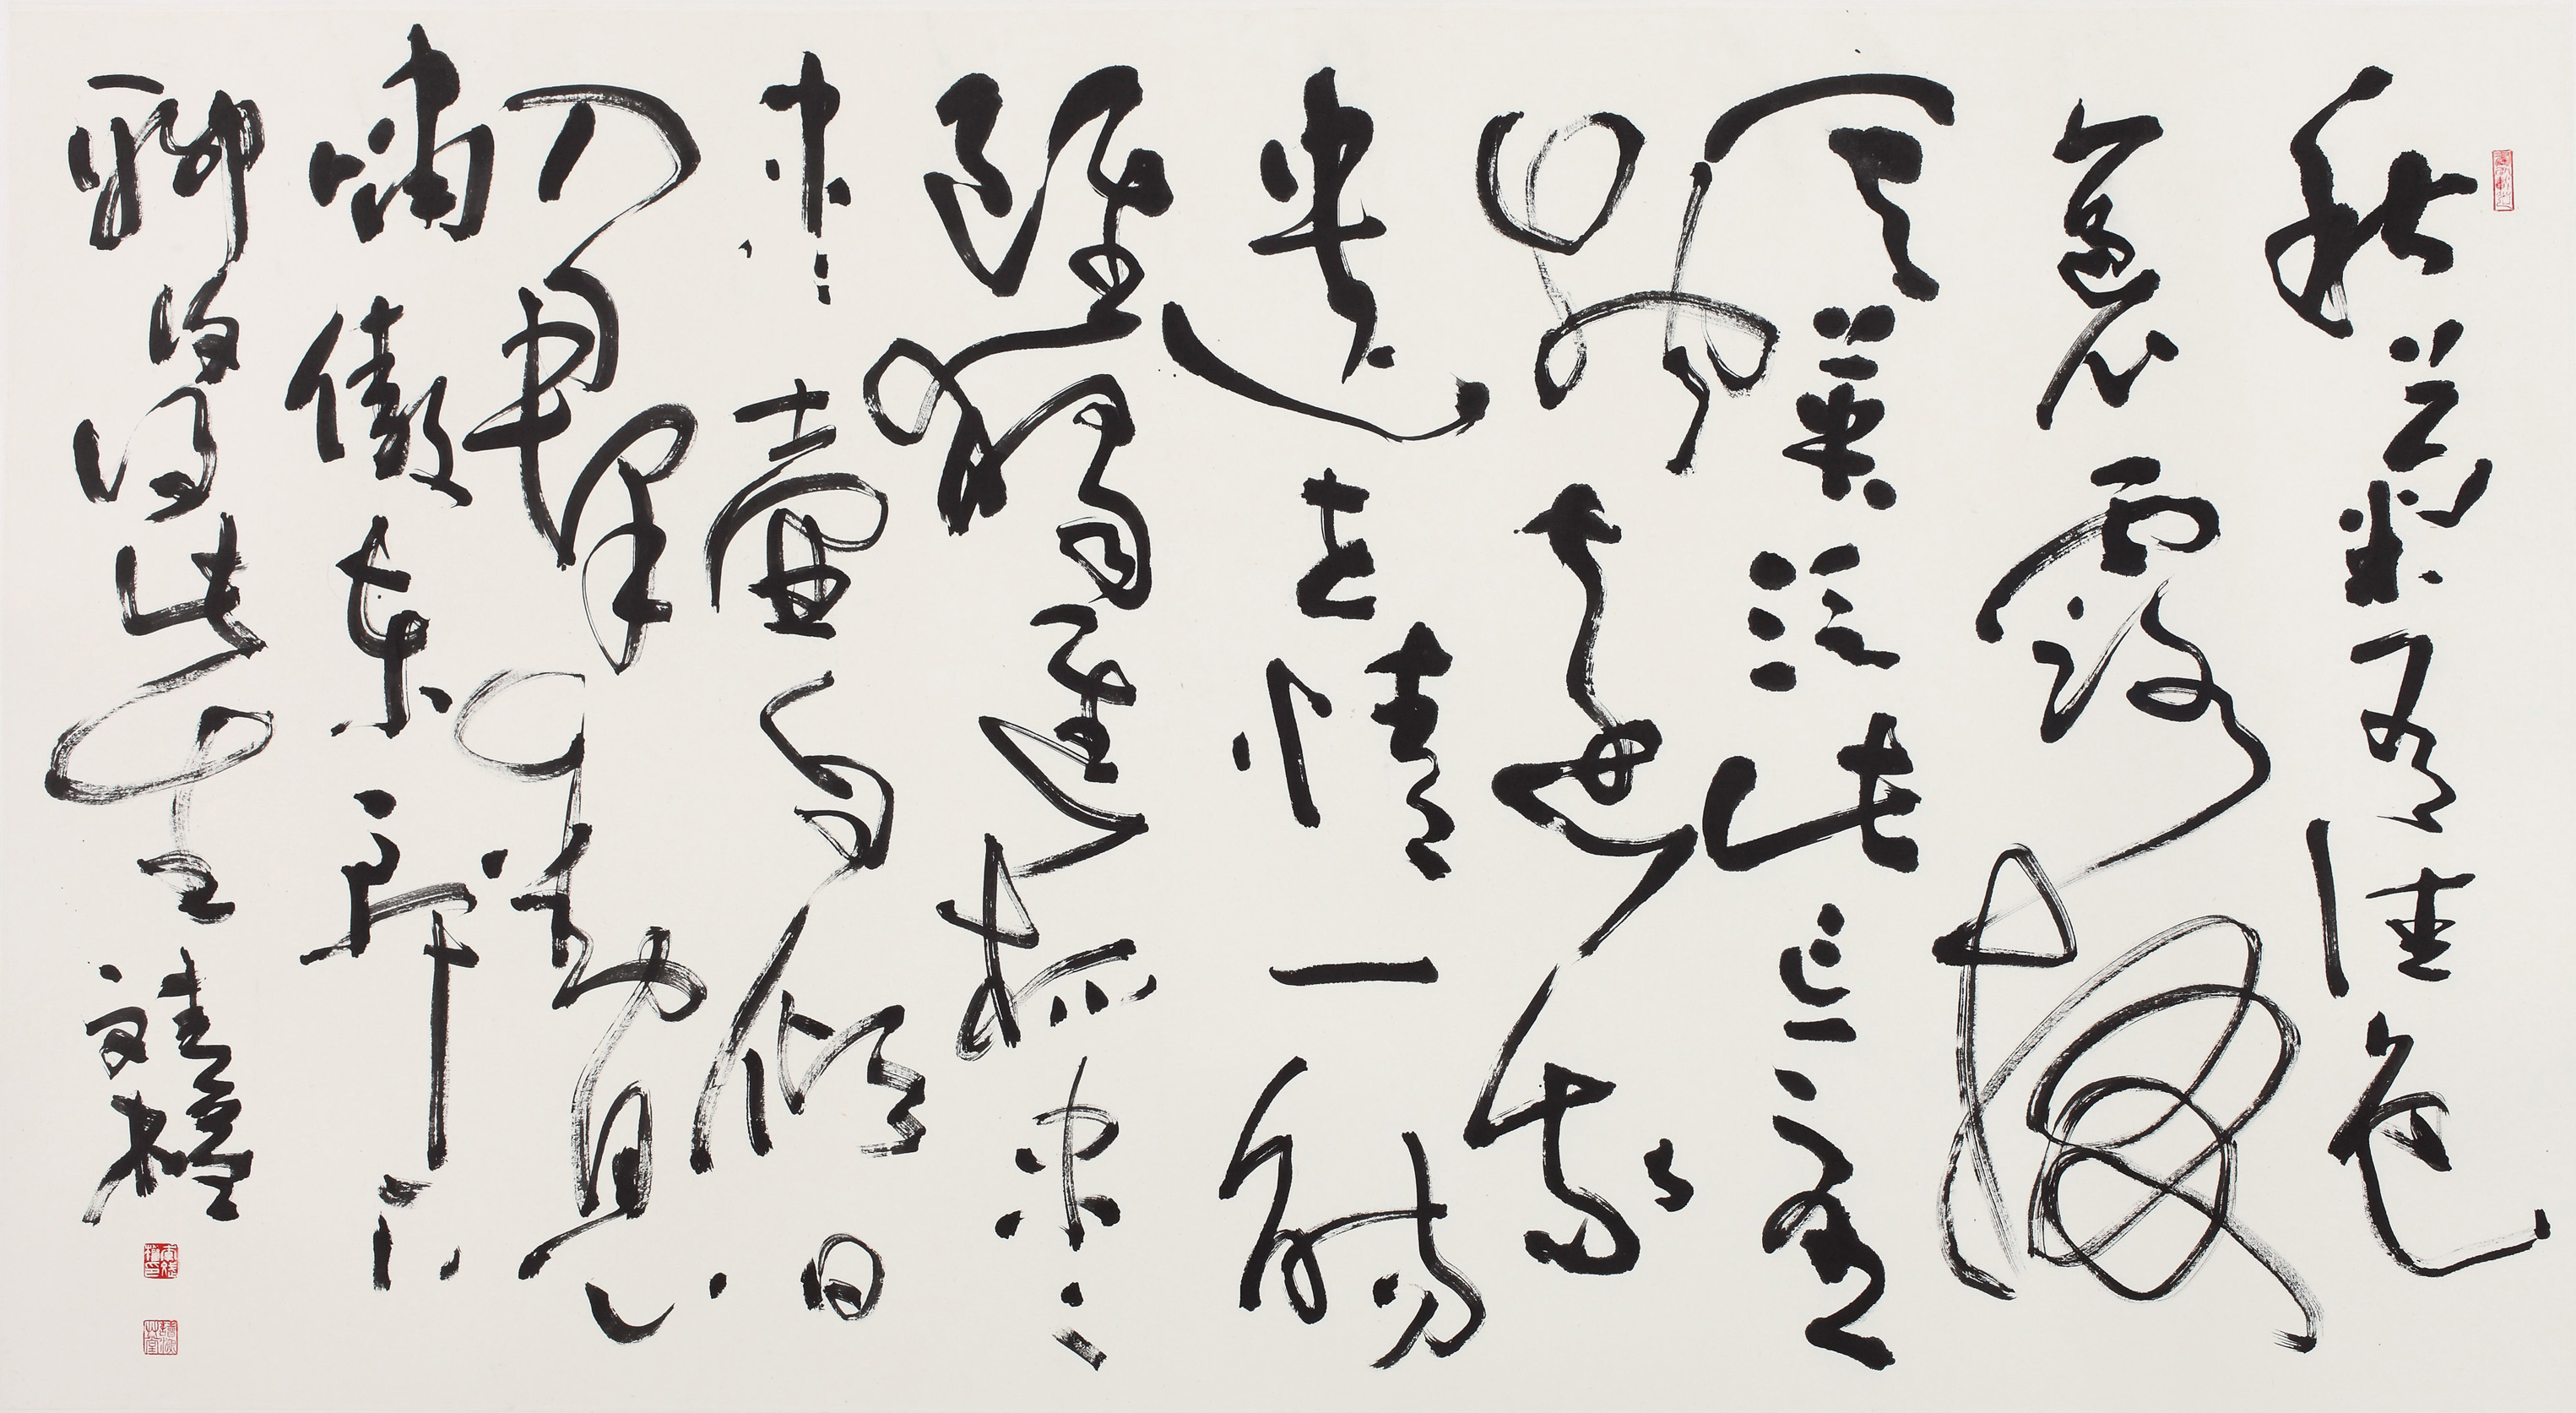 秋菊有佳色
裛露掇
其英泛此忘憂
物遠我
遺世情一觴
雖獨進杯盡
盡壺自傾日
入群動息
嘯傲東軒下
聊復得此生